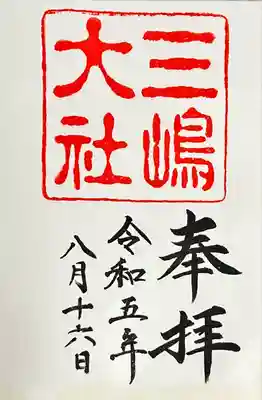 三嶋
大社
奉拝
令和五年
八月十六日